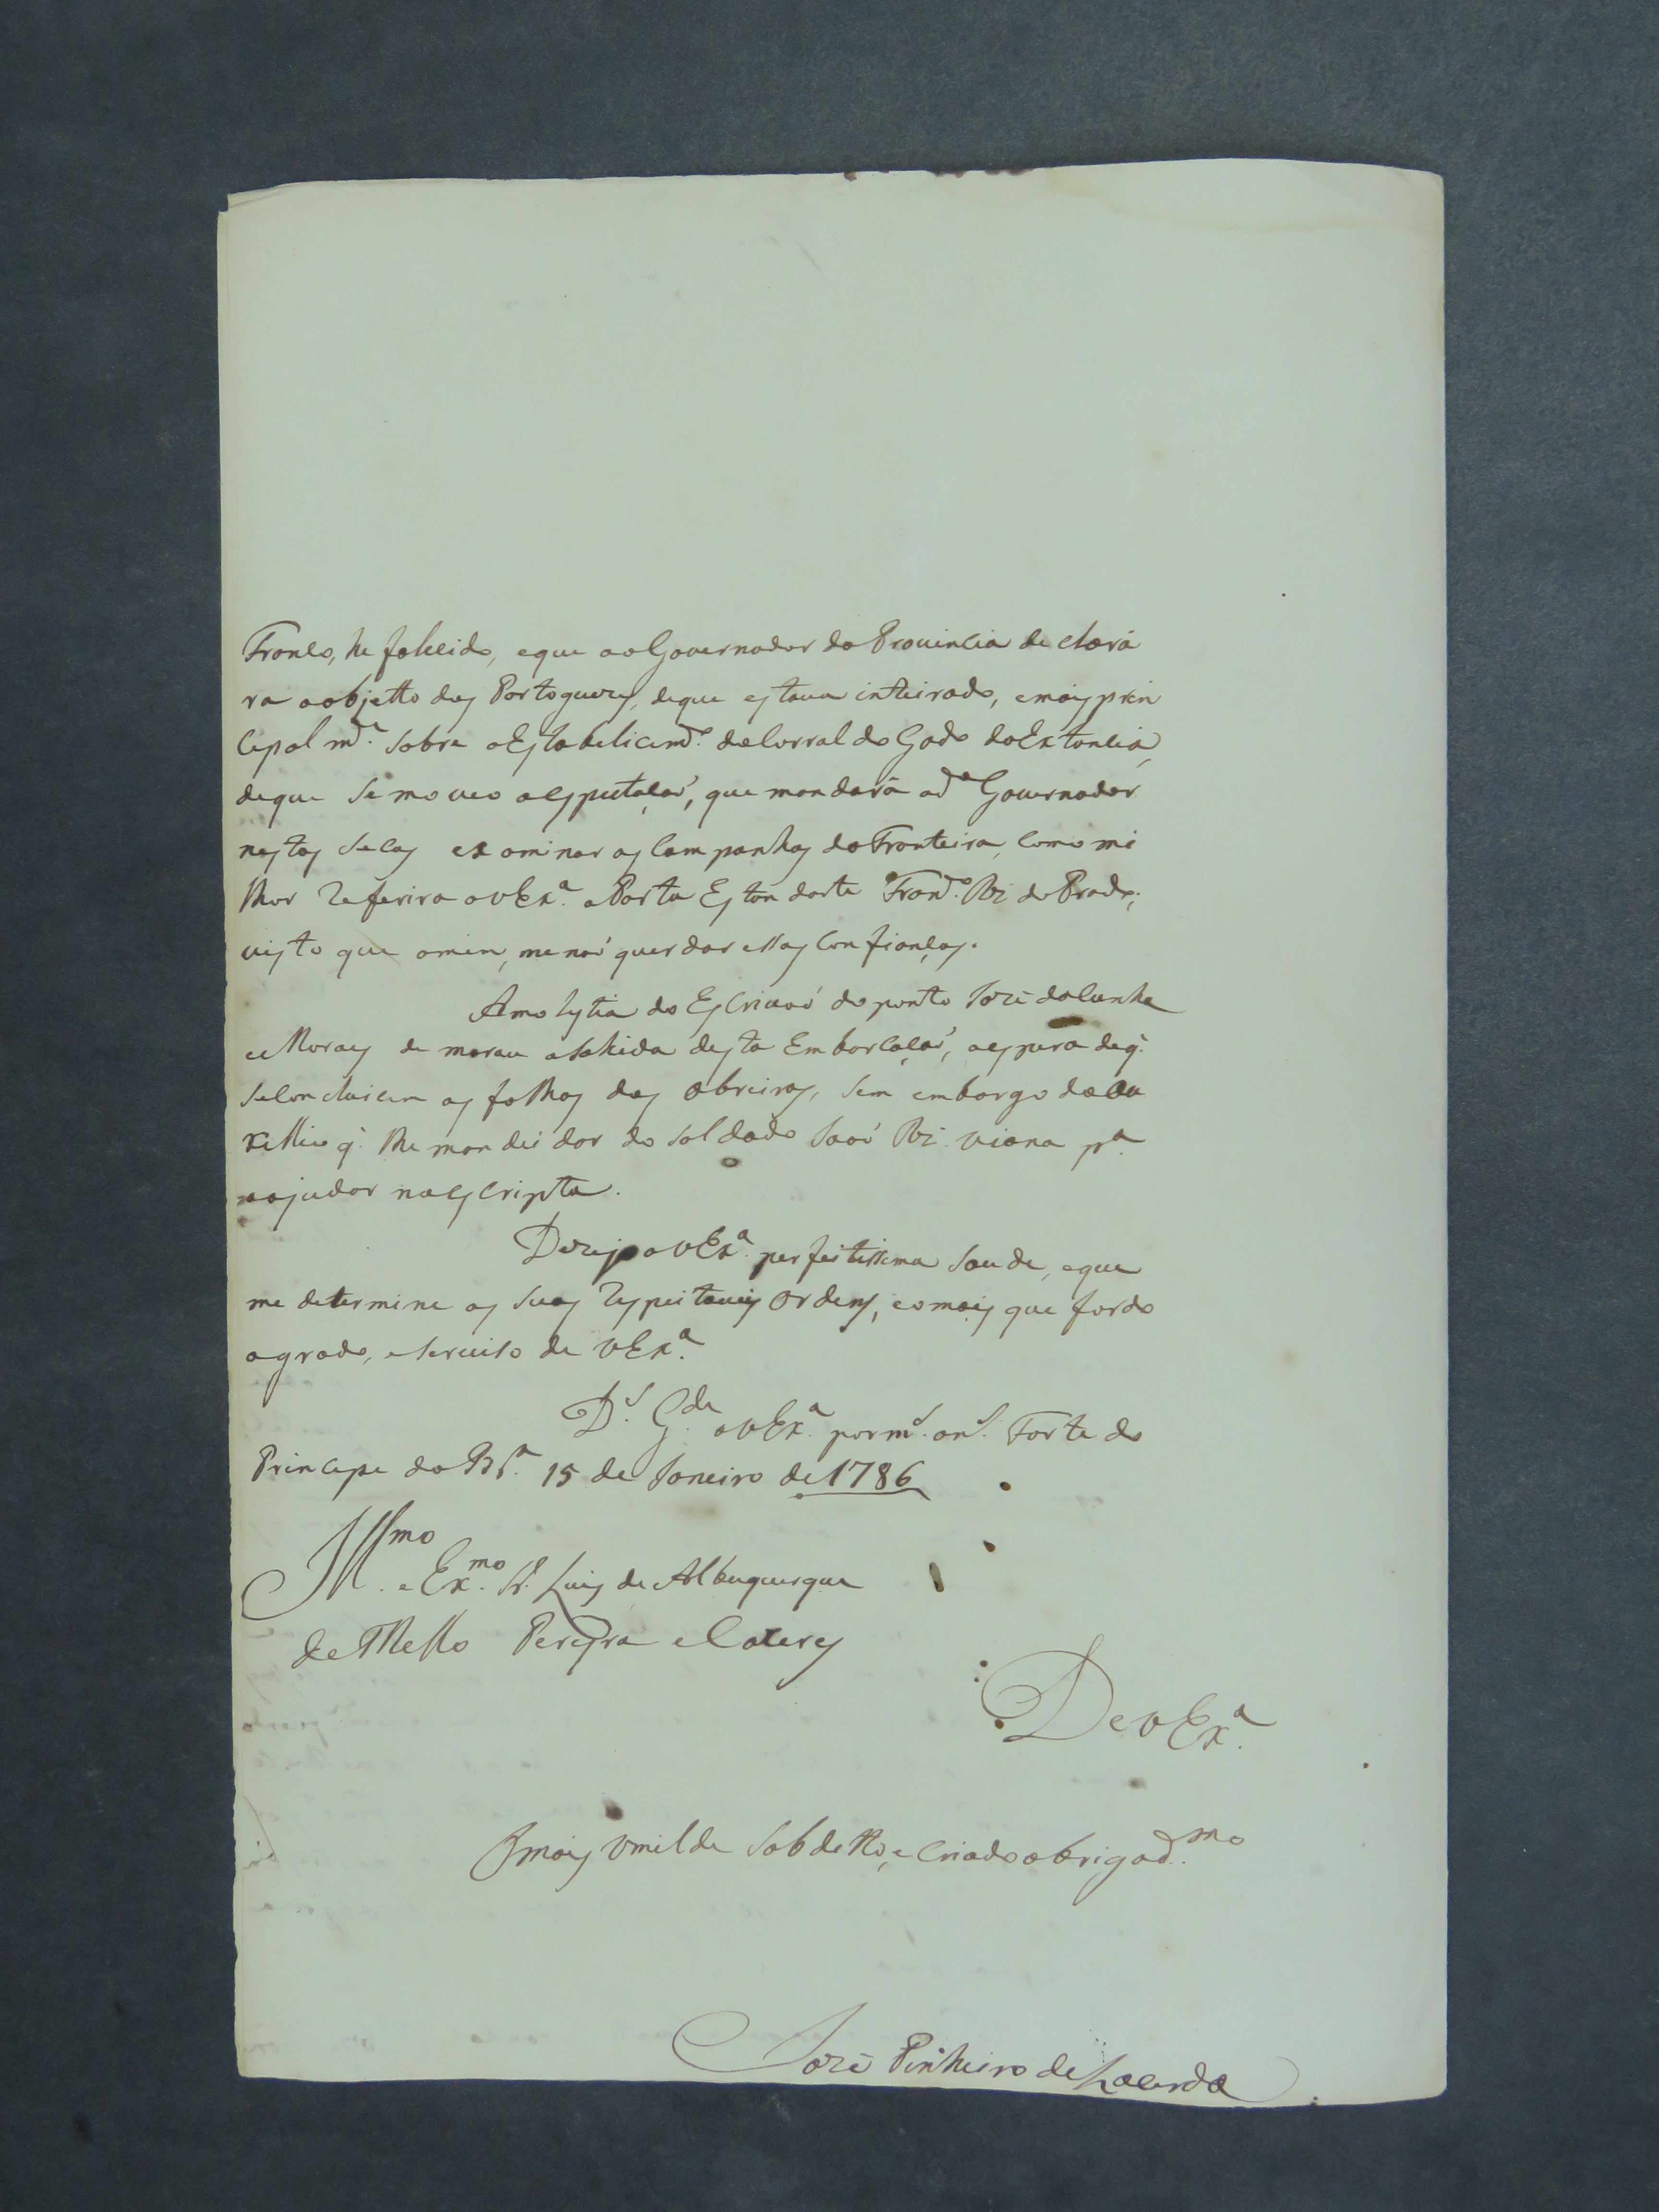 Franco, he falecido, e que ao Governador da Provincia de clará
ra o objetto dos Portoguezes, de que estava inteirado, e mais prin
cepal m.te sobre o Estabelicim.to do Corral do Gado da Extancia,
de que se moveo a espectaçaõ, que mandará o d.o Governador
nestas secas examinar as Campanhas da Fronteira, como mi
lhor referira a V Ex.a o Porta Estandarte Fran.co Roiz do Prado;
visto que amim, me naõ quer dar essas Confianças.
A molestia do Escrivaõ do ponto Jozé da Cunha
e Moraes demorau a sahida desta Embarcaçaõ, a espera de q.
se concluicem as folhas dos obreiros, sem embargo do au
xellio q. lhe mandei dar do soldado Joaõ Roiz Viana p.a
o ajudar na escripta.
Dezejo a V Ex.a perfeitissema saude, e que
me determine as suas respeitaveis ordens, e o mais que for do
agrado, e serviso de V Ex.a
D.s G.de a V Ex.a por m.s an.s Forte do
Princepe da B.a 15 de Janeiro de 1786
Ill.mo e Ex.mo Sr. Luis de Albuquerque
de Mello Pereyra e Caceres
De V Ex.a
O mais Umilde Sobdetto, e Criado obrigad.mo
Jozé Pinheiro de Lacerda